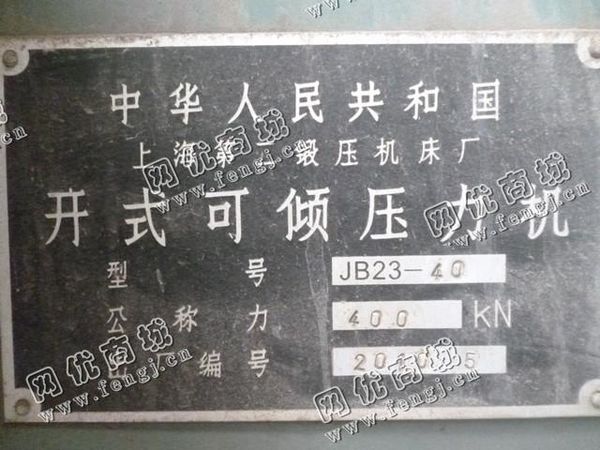 中华人民共和国
上海第二锻压机床厂
开式可倾压力机
型 号 JB23-40
公称力 400 kN
出厂编号
网优商城
www.fengj.com
网优商城
www.fengj.com
网优商城
www.fengj.com
网优商城
www.fengj.com